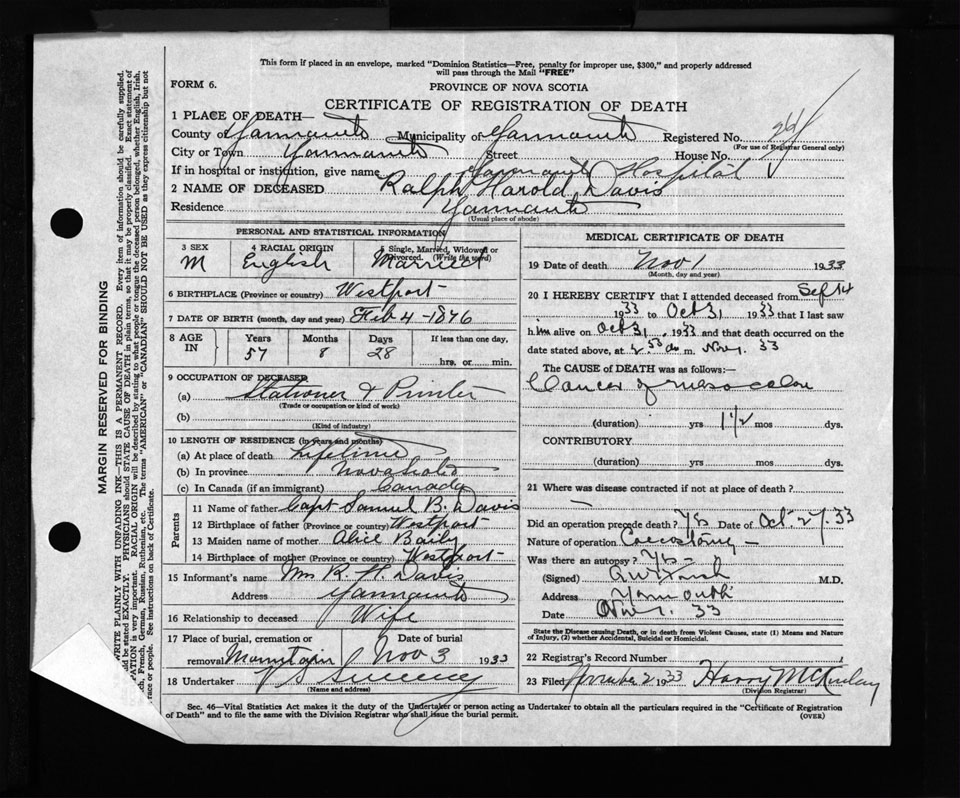 This form if placed in an envelope, marked "Dominion Statistics—Free, penalty for improper use, $300," and properly addressed
will pass through the Mail "FREE"
FORM 6.
PROVINCE OF NOVA SCOTIA
CERTIFICATE OF REGISTRATION OF DEATH
1 PLACE OF DEATH—
County of Yarmouth Municipality of Yarmouth Registered No.
(For use of Registrar General only)
City or Town Yarmouth Street House No.
If in hospital or institution, give name Yarmouth Hospital
2 NAME OF DECEASED Ralph Harold Davis
Residence Yarmouth
(Usual place of abode)
PERSONAL AND STATISTICAL INFORMATION
3 SEX 4 RACIAL ORIGIN 5 Single, Married, Widowed or
Divorced. (Write the word)
M English Married
6 BIRTHPLACE (Province or country) Westport
7 DATE OF BIRTH (month, day and year) Feb 4 - 1876
8 AGE IN Years Months Days If less than one day,
57 8 28 hrs. or min.
9 OCCUPATION OF DECEASED
(a) Stationer & Printer
(Trade or occupation or kind of work)
(b)
(Kind of industry)
10 LENGTH OF RESIDENCE (in years and months)
(a) At place of death Lifetime
(b) In province Nova Scotia
(c) In Canada (if an immigrant) Canada
Parents
11 Name of father Capt Samuel B. Davis
12 Birthplace of father (Province or country) Westport
13 Maiden name of mother Alice Baily
14 Birthplace of mother (Province or country) Westport
15 Informant's name Mrs R. H. Davis
Address Yarmouth
16 Relationship to deceased Wife
17 Place of burial, cremation or Date of burial
removal Mountain Nov 3 1933
18 Undertaker V S Sweeny
(Name and address)
MEDICAL CERTIFICATE OF DEATH
19 Date of death Nov 1 1933
(Month, day and year)
20 I HEREBY CERTIFY that I attended deceased from Sept 14
1933 to Oct 31 1933 that I last saw
him alive on Oct 31, 1933 and that death occurred on the
date stated above, at 2.50 a m. Nov 1. 33
The CAUSE OF DEATH was as follows:—
Cancer of
(duration) yrs 1 1/2 mos dys.
CONTRIBUTORY
(duration) yrs mos dys.
21 Where was disease contracted if not at place of death?
—
Did an operation precede death? Yes Date of Oct 27. 33
Nature of operation Caecostomy —
Was there an autopsy? Yes
(Signed) M.D.
Address Yarmouth
Date Nov 1. 33
State the Disease causing Death, or in death from Violent Causes, state (1) Means and Nature
of Injury, (2) whether Accidental, Suicidal or Homicidal.
22 Registrar's Record Number
23 Filed November 2 1933 Harry McKinlay
(Division Registrar)
Sec. 46—Vital Statistics Act makes it the duty of the Undertaker or person acting as Undertaker to obtain all the particulars required in the "Certificate of Registration
of Death" and to file the same with the Division Registrar who shall issue the burial permit.
(OVER)
MARGIN RESERVED FOR BINDING
WRITE PLAINLY WITH UNFADING INK—THIS IS A PERMANENT RECORD. Every item of information should be carefully supplied.
should be stated EXACTLY. PHYSICIANS should STATE CAUSE OF DEATH in plain terms, so that it may be properly classified. Exact statement of
OCCUPATION is very important. RACIAL ORIGIN will be described by stating to what people or tongue the deceased person belonged, whether English, Irish,
Scotch, French, German, Russian, Ruthenian, etc. The terms "AMERICAN" or "CANADIAN" SHOULD NOT BE USED as they express citizenship but not
race or people. See instructions on back of Certificate.